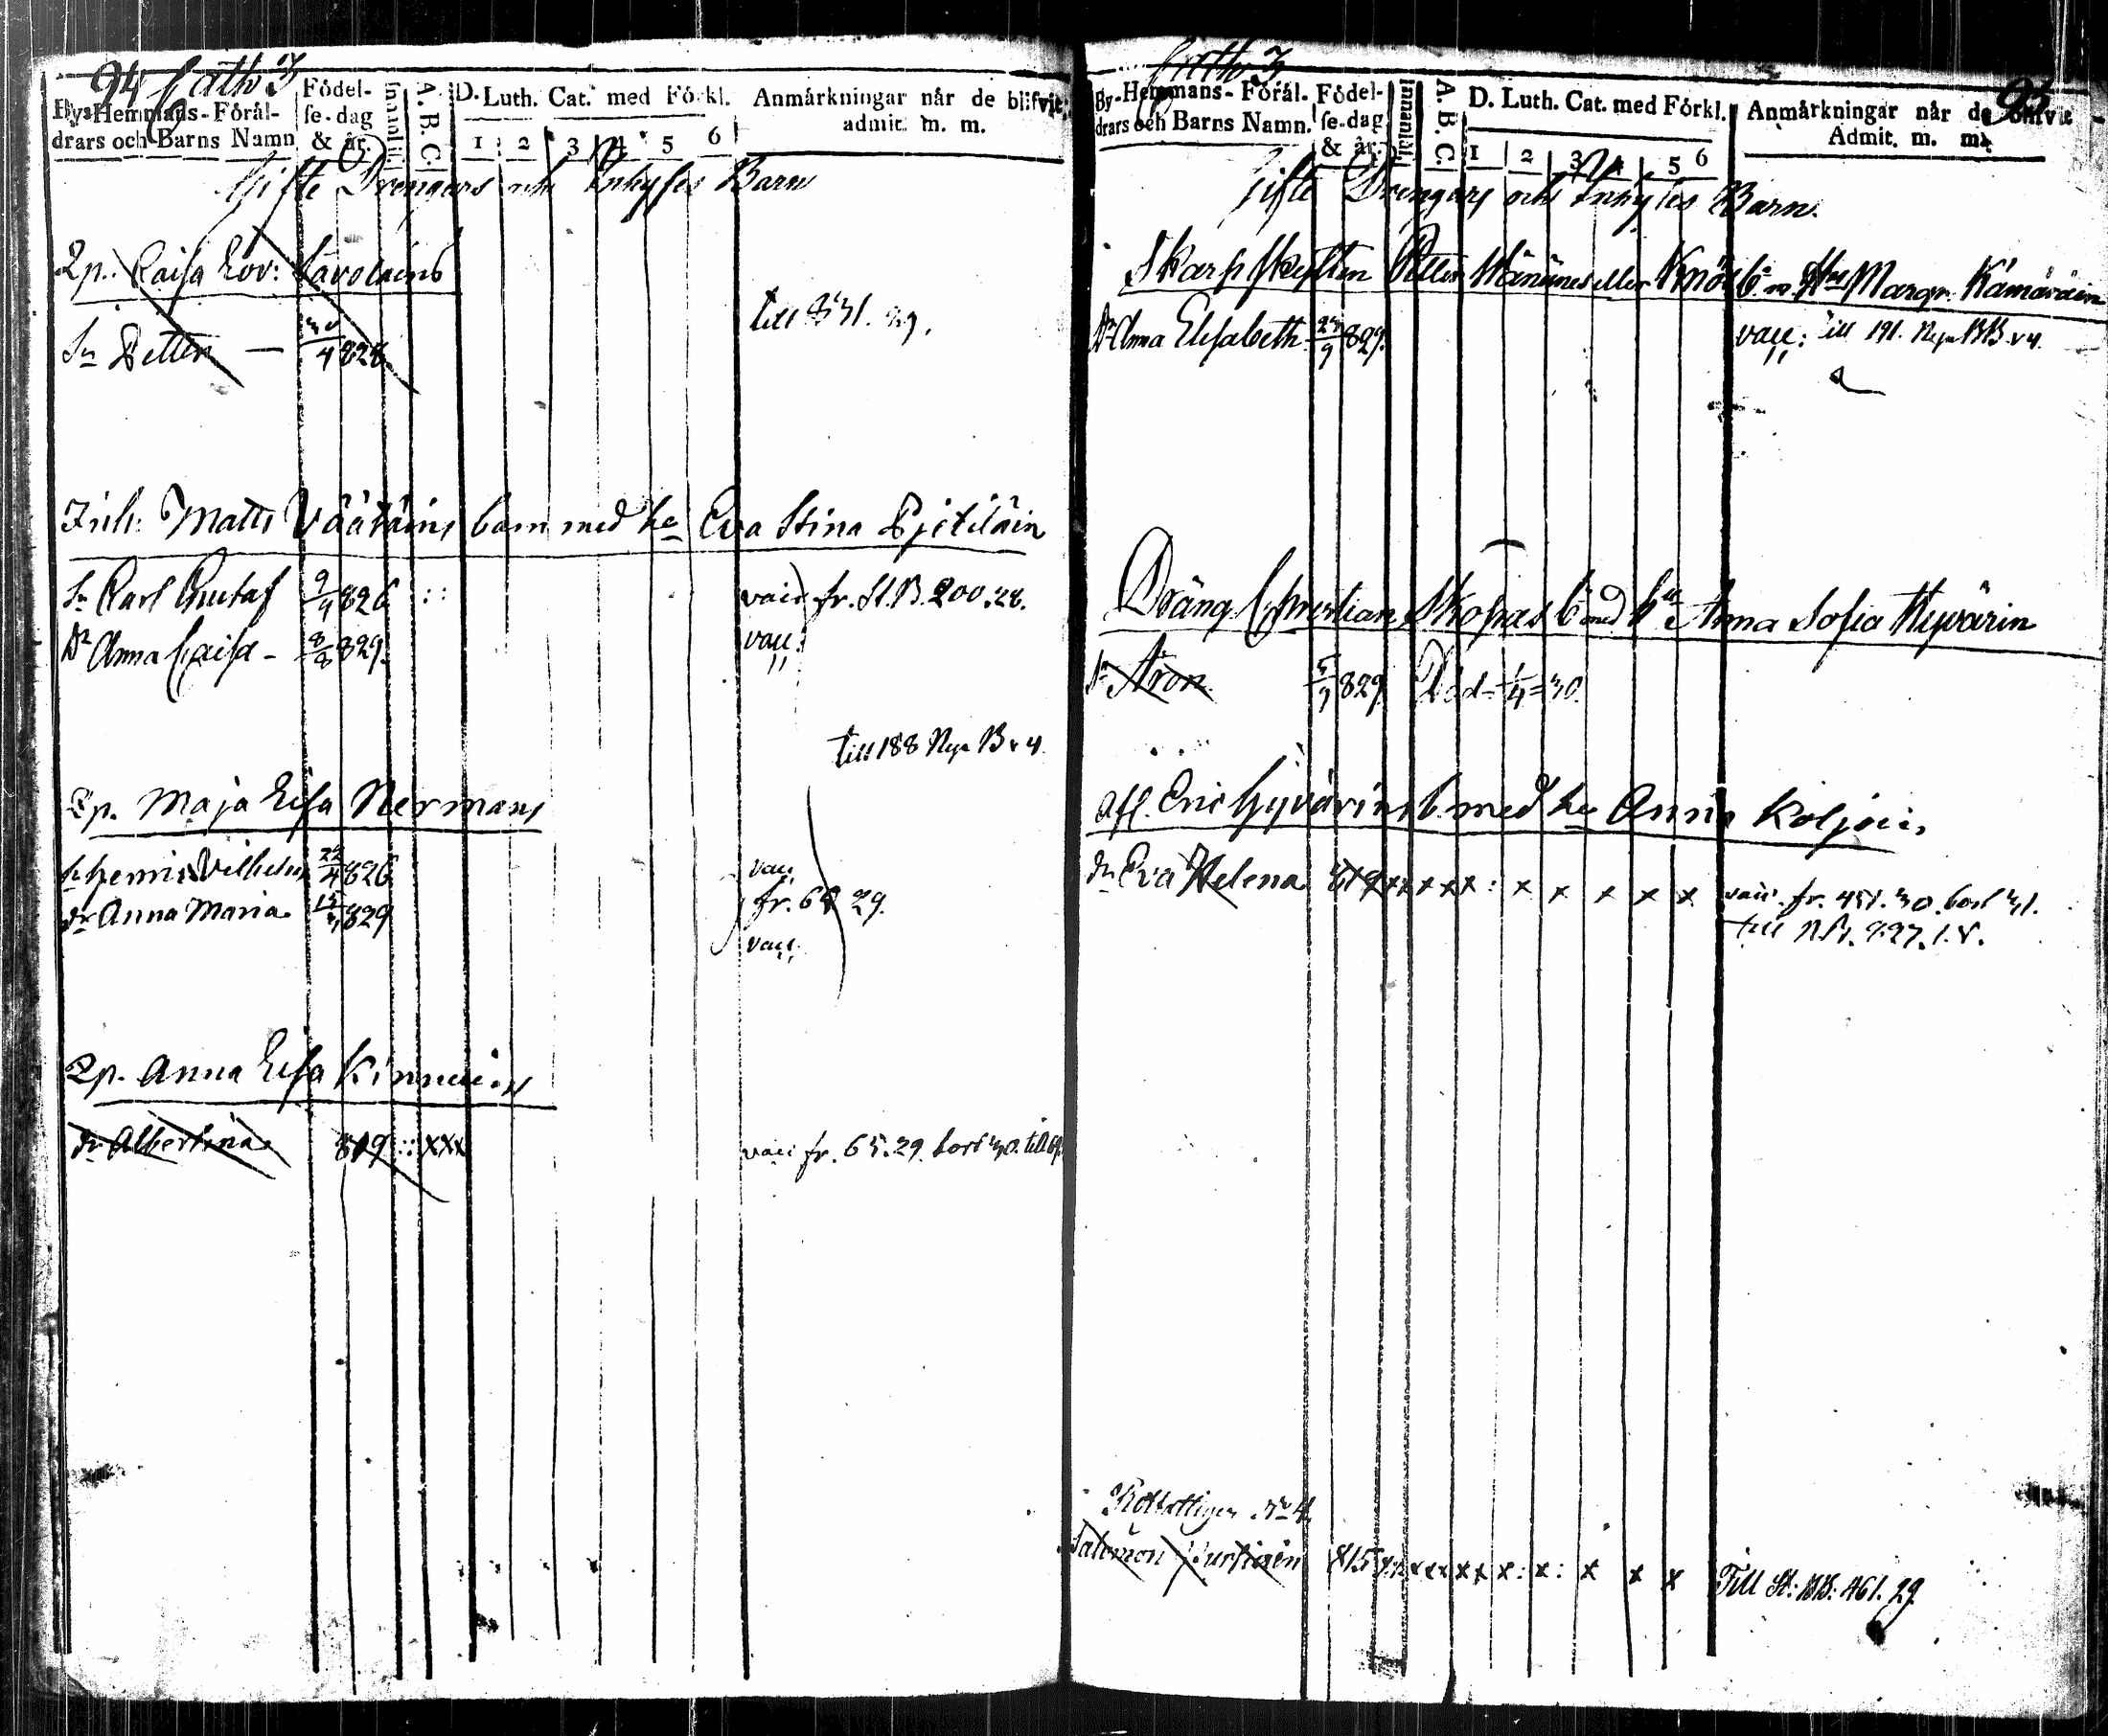 94
By-Hemmans-Föräl-
drars och Barns Namn
Födel-
se-dag
& år.
A. B. C.
D. Luth. Cat. med Förkl.
1 2 3 4 5 6
Anmärkningar når de blifvit
admit. m. m.
Gifte Drengars och Inhyses Barn
Qp. Caisa Lov: Savolains
Sn Petter — 4 828
till 831. 29.
Inh: Matts Väätäins barn med he Eva Stina Pjetiläin
Sn Carl Gustaf 9/4 826 : : vacc fr. St. B. 200. 28.
Dr Anna Caisa - 8/8 829. vacc:
till 188 Nya B v 4
Qp. Maja Lisa Nermans
sn Henric Vilhelm 22/4 826 vacc
fr. 29.
dr Anna Maria 829 vacc
Qp. Anna Lisa Kinnuins
dr Albertina 819 :: xxx vacc fr. 65. 29. bort 30. till
By-Hemmans-Föräl.
drars och Barns Namn.
Födel-
se-dag
& år.
Innanläs
A. B. C.
D. Luth. Cat. med Förkl.
1 2 3 4 5 6
Anmärkningar når de blifvit
Admit. m. m.
Gifte Drengars och Inhyses Barn.
Skarpskytten Petter Hännines eller b. m Hu Margr. Kämäräin
Dr Anna Elisabeth 9 829. vacc: till 191. Nya BB v 4.
Dräng Christian Skopas b med hu Anna Sofia Hyvärin
Sn Aron 829. Död 1/4 = 30.
Afl. Eric Hyvärins b. med he Anna Koljoin
dr Eva Helena 819 x x x x x : x x x x x vacc. fr. 451. 30. bort 31.
till 927. 1. V.
No 4
Salomon Pursiain 815 x x x x x x : x : x x x Till St: BB: 461. 29